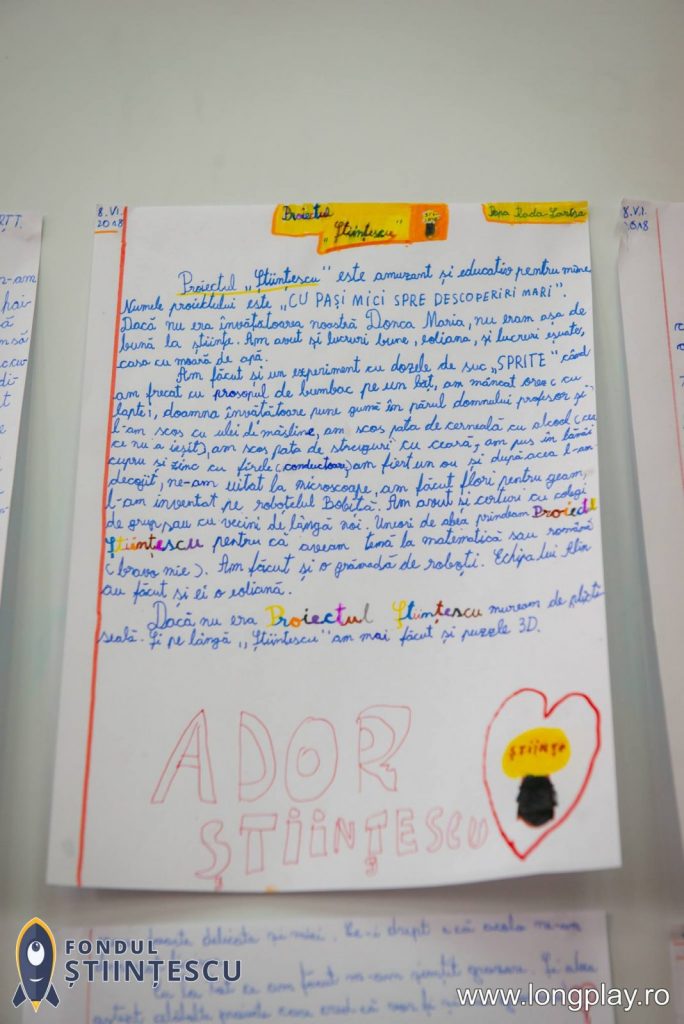 8.VI.
2018
Proiectul
„Științescu"
Popa Rada-Larisa
Proiectul „Științescu" este amuzant și educativ pentru mine.
Numele proiectului este „CU PAȘI MICI SPRE DESCOPERIRI MARI".
Dacă nu era învățătoarea noastră Donca Maria, nu eram așa de
bună la științe. Am avut și lucruri bune, eoliana, și lucruri eșuate,
casa cu moară de apă.
Am făcut și un experiment cu dozele de suc „SPRITE" când
am frecat cu prosopul de bumbac pe un băț, am mâncat oreo (cu
lapte), doamna învățătoare pune gumă în părul domnului profesor și
l-am scos cu ulei de măsline, am scos pata de cerneală cu alcool (
ce nu a ieșit), am scos pata de struguri cu ceară, am pus în lămâi
cupru și zinc cu firele (conductoare), am fiert un ou și după aceea l-am
decojit, ne-am uitat la microscoape, am făcut flori pentru geam,
l-am inventat pe roboțelul Bobiță. Am avut și certuri cu colegi
de grup sau cu vecini de lângă noi. Uneori de abea prindeam Proiectul
Științescu pentru că aveam temă la matematică sau română
(bravo mie). Am făcut și o grămadă de roboți. Echipa lui Alin
au făcut și ei o eoliană.
Dacă nu era Proiectul Științescu muream de plicti
seală. Și pe lângă „Științescu" am mai făcut și puzzle 3D.
ADOR
ȘTIINȚESCU
ȘTIINȚE
8.VI.
2018
FONDUL
ȘTIINȚESCU
www.longplay.ro